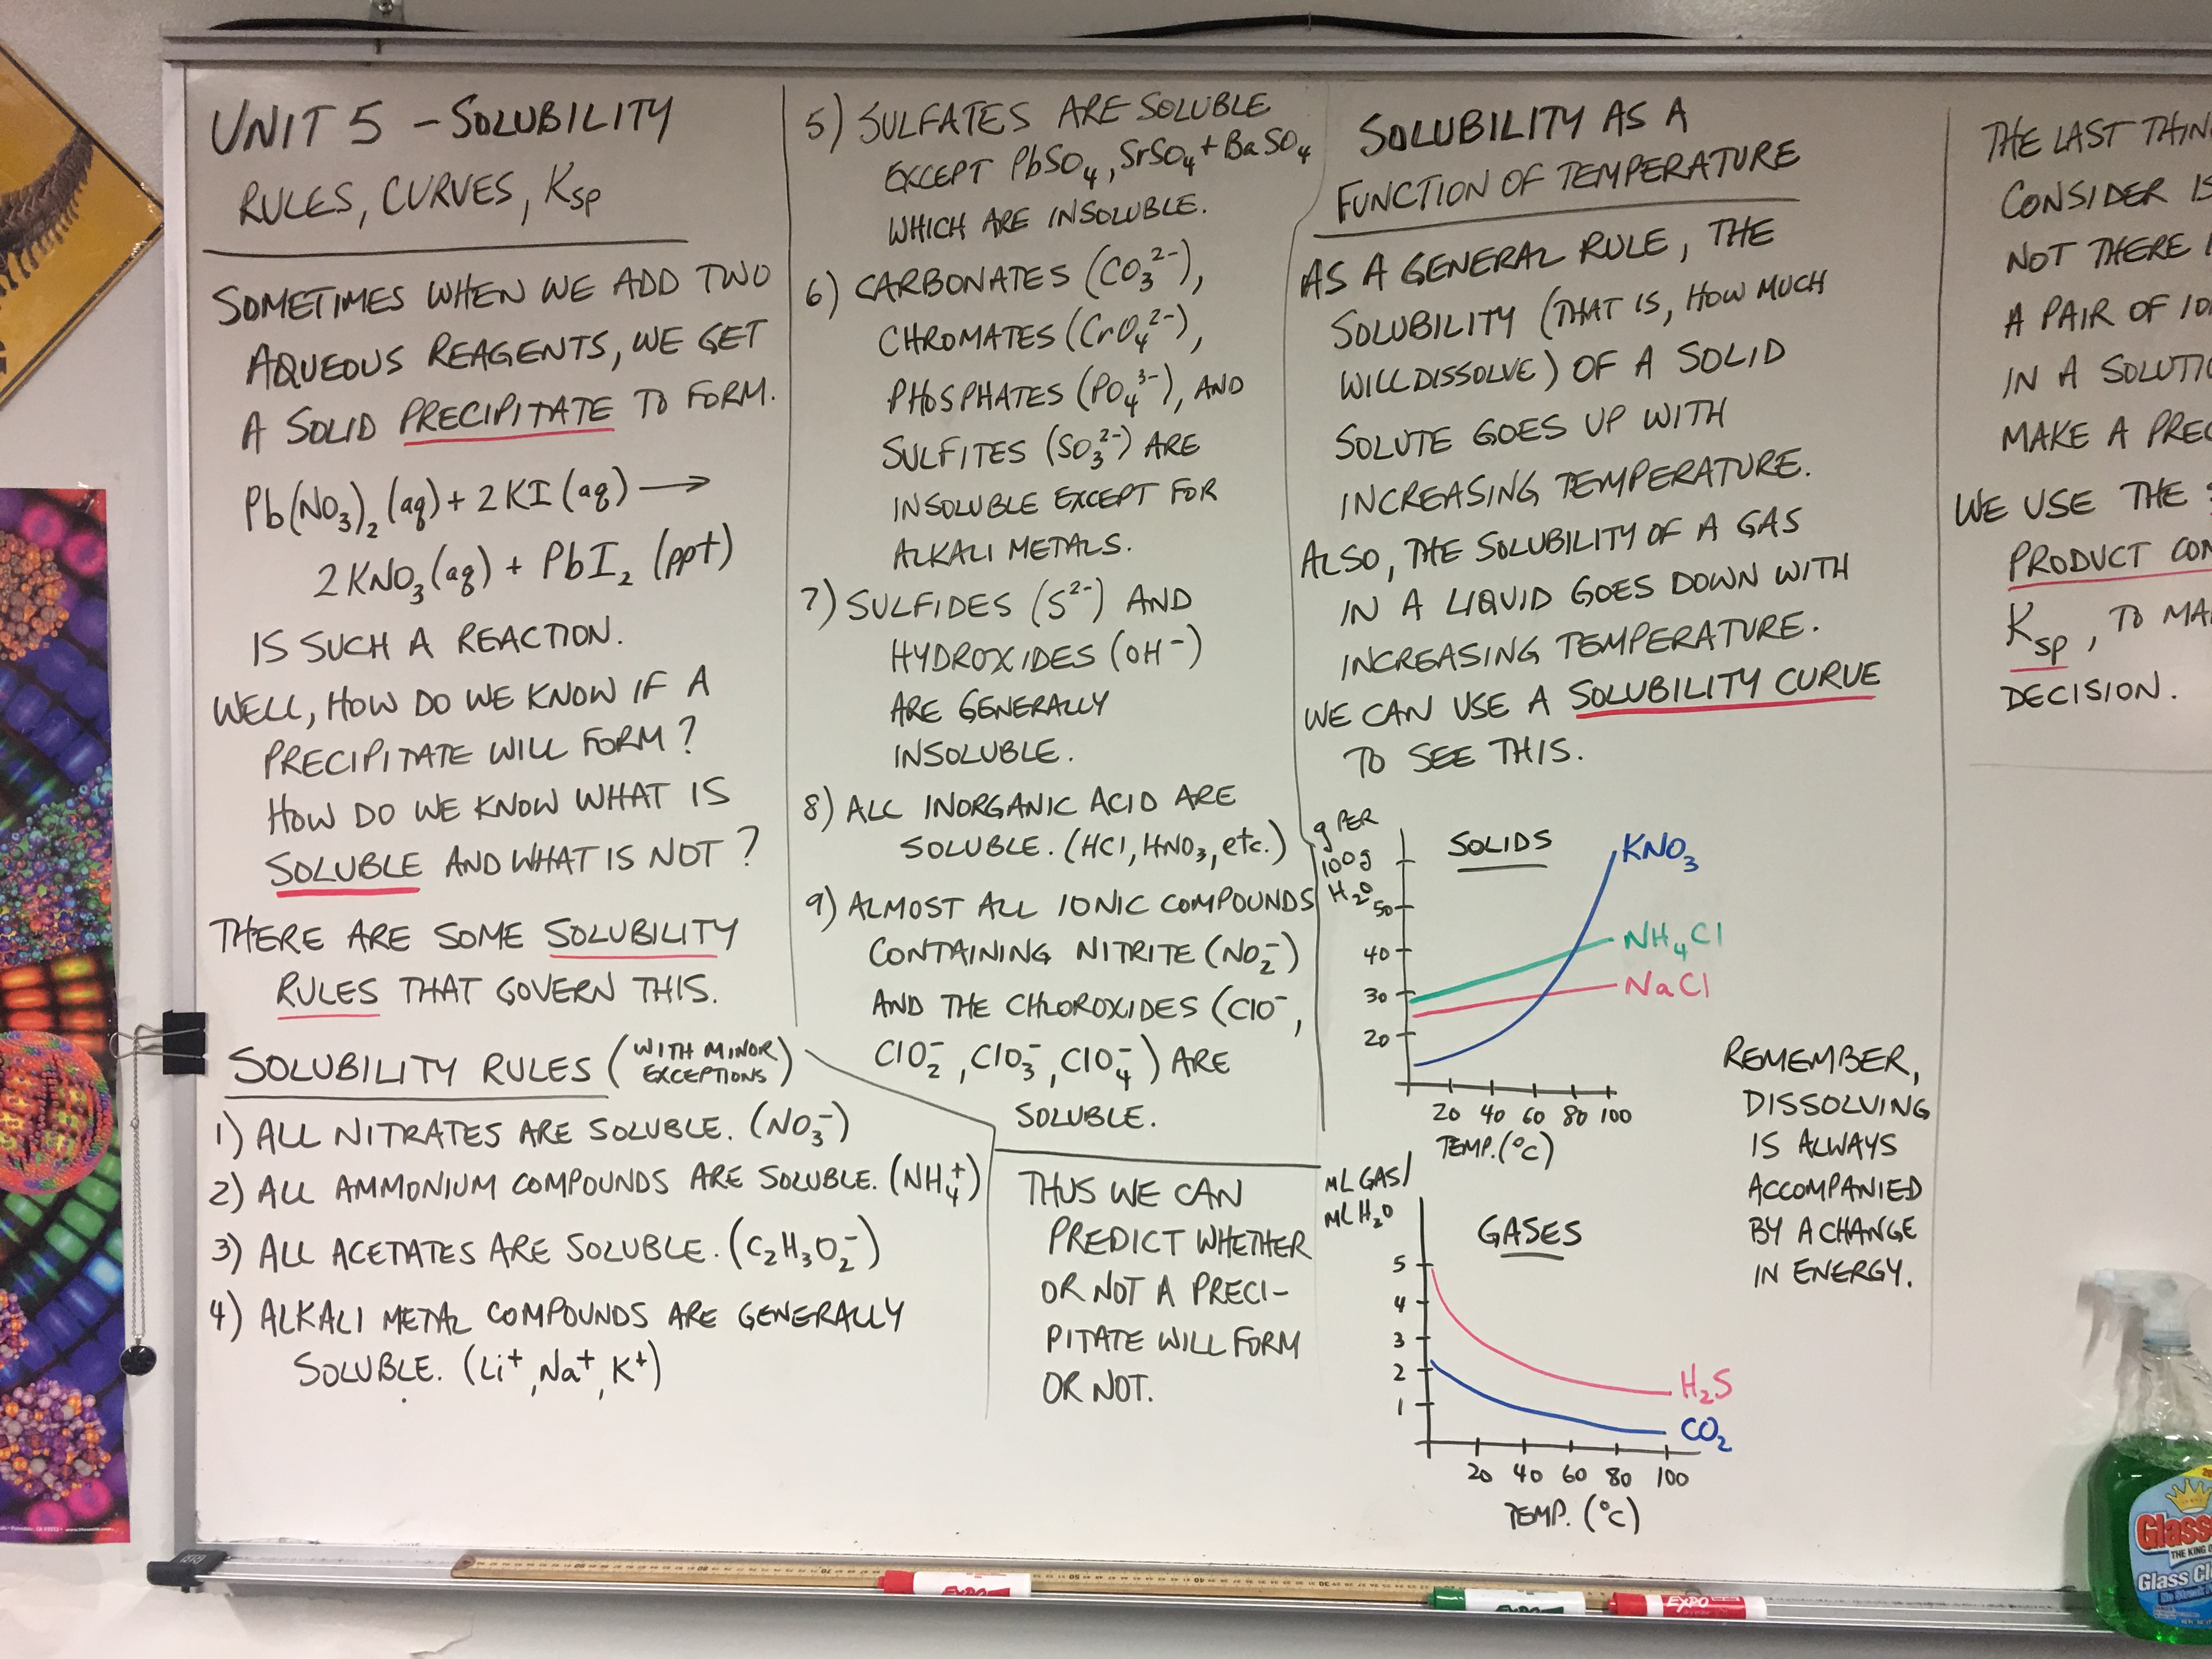 UNIT 5 - SOLUBILITY
RULES, CURVES, Ksp
SOMETIMES WHEN WE ADD TWO
AQUEOUS REAGENTS, WE GET
A SOLID PRECIPITATE TO FORM.
Pb(NO₃)₂ (aq) + 2 KI (aq) →
2 KNO₃ (aq) + PbI₂ (ppt)
IS SUCH A REACTION.
WELL, HOW DO WE KNOW IF A
PRECIPITATE WILL FORM?
HOW DO WE KNOW WHAT IS
SOLUBLE AND WHAT IS NOT?
THERE ARE SOME SOLUBILITY
RULES THAT GOVERN THIS.
SOLUBILITY RULES (WITH MINOR
EXCEPTIONS)
1) ALL NITRATES ARE SOLUBLE. (NO₃⁻)
2) ALL AMMONIUM COMPOUNDS ARE SOLUBLE. (NH₄⁺)
3) ALL ACETATES ARE SOLUBLE. (C₂H₃O₂⁻)
4) ALKALI METAL COMPOUNDS ARE GENERALLY
SOLUBLE. (Li⁺, Na⁺, K⁺)
5) SULFATES ARE SOLUBLE
EXCEPT PbSO₄, SrSO₄ + BaSO₄
WHICH ARE INSOLUBLE.
6) CARBONATES (CO₃²⁻),
CHROMATES (CrO₄²⁻),
PHOSPHATES (PO₄³⁻), AND
SULFITES (SO₃²⁻) ARE
INSOLUBLE EXCEPT FOR
ALKALI METALS.
7) SULFIDES (S²⁻) AND
HYDROXIDES (OH⁻)
ARE GENERALLY
INSOLUBLE.
8) ALL INORGANIC ACID ARE
SOLUBLE. (HCl, HNO₃, etc.)
9) ALMOST ALL IONIC COMPOUNDS
CONTAINING NITRITE (NO₂⁻)
AND THE CHLOROXIDES (ClO⁻,
ClO₂⁻, ClO₃⁻, ClO₄⁻) ARE
SOLUBLE.
THUS WE CAN
PREDICT WHETHER
OR NOT A PRECI-
PITATE WILL FORM
OR NOT.
SOLUBILITY AS A
FUNCTION OF TEMPERATURE
AS A GENERAL RULE, THE
SOLUBILITY (THAT IS, HOW MUCH
WILL DISSOLVE) OF A SOLID
SOLUTE GOES UP WITH
INCREASING TEMPERATURE.
ALSO, THE SOLUBILITY OF A GAS
IN A LIQUID GOES DOWN WITH
INCREASING TEMPERATURE.
WE CAN USE A SOLUBILITY CURVE
TO SEE THIS.
g PER
100g
H₂O
SOLIDS
KNO₃
50
40
NH₄Cl
30
NaCl
20
20 40 60 80 100
TEMP. (°C)
REMEMBER,
DISSOLVING
IS ALWAYS
ACCOMPANIED
BY A CHANGE
IN ENERGY.
mL GAS/
mL H₂O
GASES
5
4
3
2
1
H₂S
CO₂
20 40 60 80 100
TEMP. (°C)
THE LAST
CONSIDER
NOT THERE
A PAIR OF
IN A
MAKE A
WE USE THE
PRODUCT
Ksp, TO
DECISION.
EXPO
EXPO
EXPO
THE KING
Glass